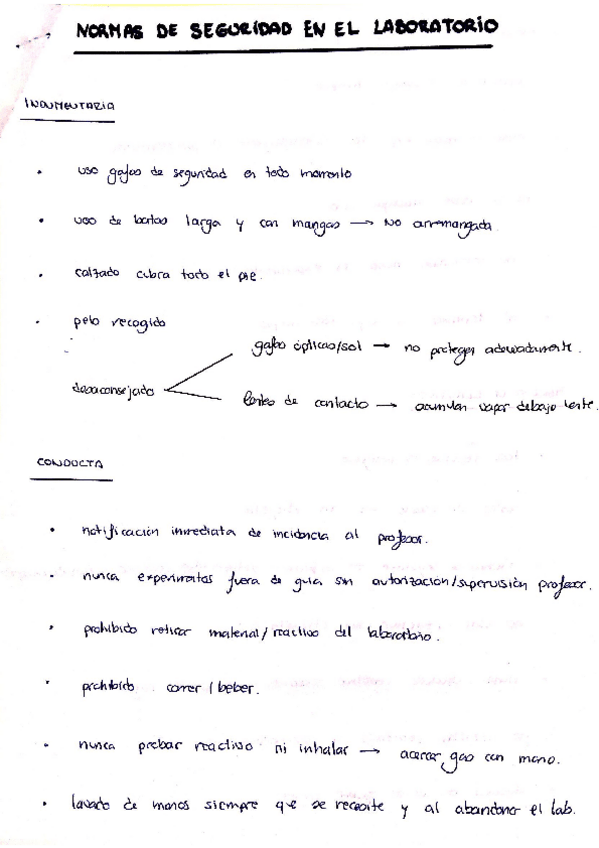 NORMAS DE SEGURIDAD EN EL LABORATORIO
INDUMENTARIA
• uso gafas de seguridad en todo momento
• uso de batas larga y con mangas → No arremangada.
• calzado cubra todo el pie.
• pelo recogido
gafas ópticas/sol → no protegen adecuadamente.
desaconsejado
lentes de contacto → acumulan vapor debajo lente.
CONDUCTA
• notificación inmediata de incidencia al profesor.
• nunca experimentos fuera de guia sin autorización/supervisión profesor.
• prohibido retirar material/reactivo del laboratorio.
• prohibido correr / beber.
• nunca probar reactivo ni inhalar → acercar gas con mano.
• lavado de manos siempre que se necesite y al abandonar el lab.